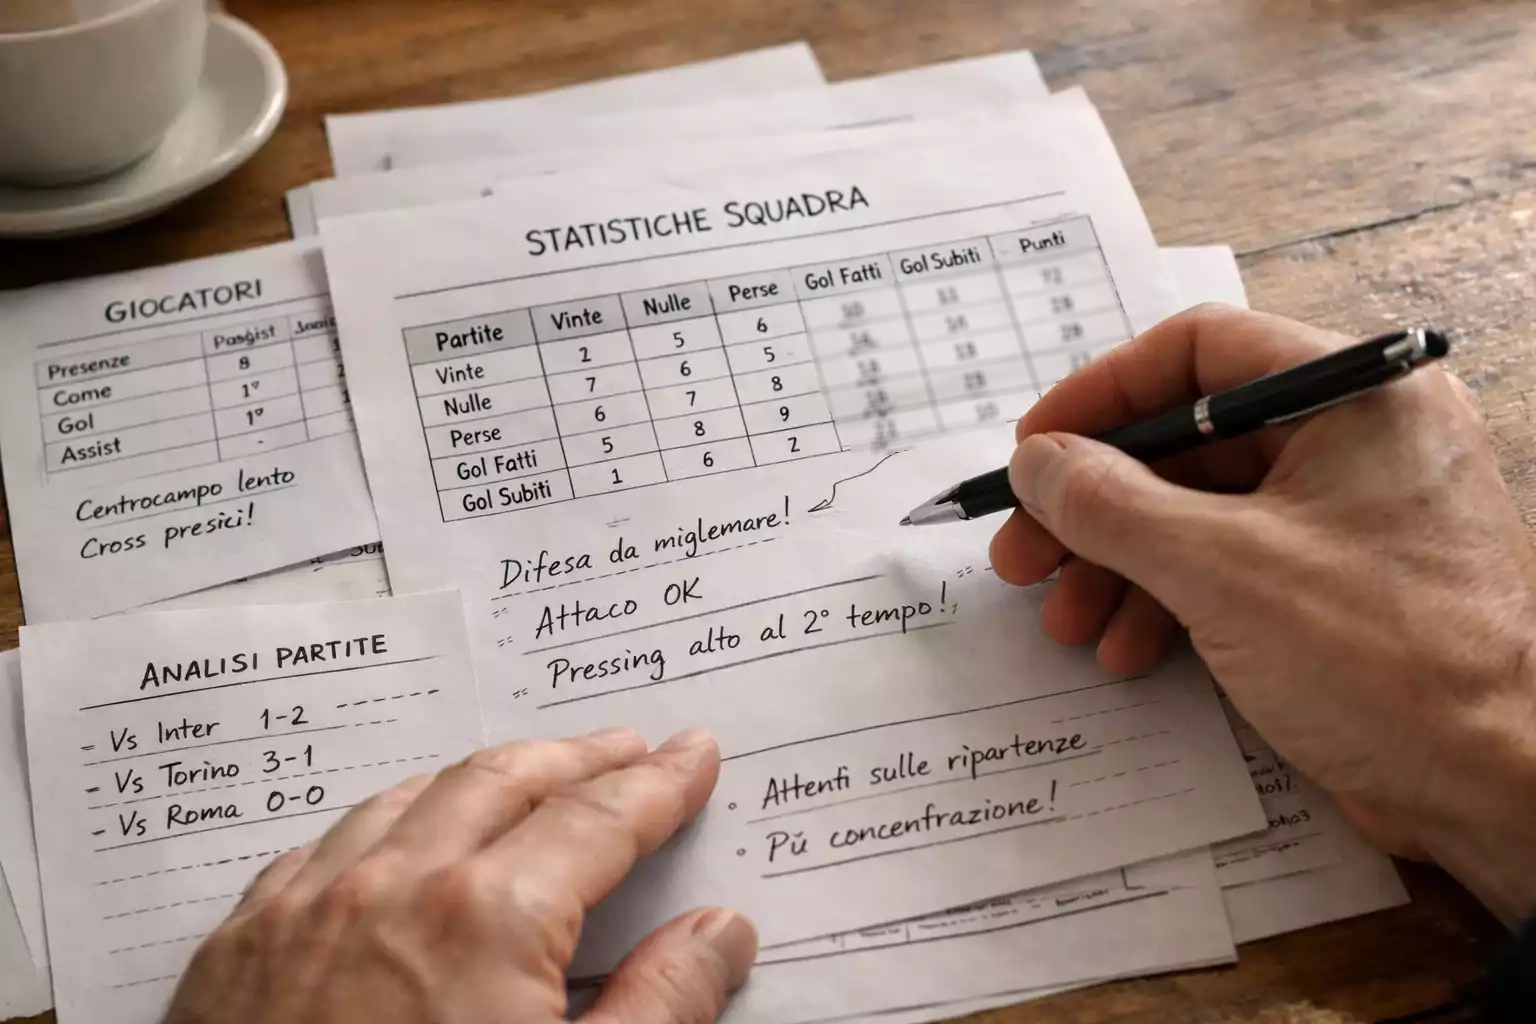 STATISTICHE SQUADRA
Partite Vinte Nulle Perse Gol Fatti Gol Subiti Punti
Vinte 2 5 6
Nulle 7 6 5
Perse 6 7 8
Gol Fatti 5 8 9
Gol Subiti 1 6 2
Difesa da miglemare!
Attaco OK
Pressing alto al 2° tempo!
Attenti sulle ripartenze
Pŭ concenfrazione!
GIOCATORI
Pasgist
Presenze 8
Come 1°
Gol 1°
Assist -
Centrocampo lento
Cross presici!
ANALISI PARTITE
- Vs Inter 1-2
- Vs Torino 3-1
- Vs Roma 0-0